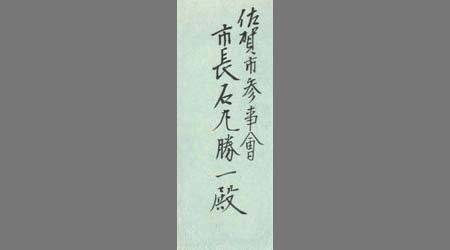 佐賀市参事會
市長石丸勝一殿